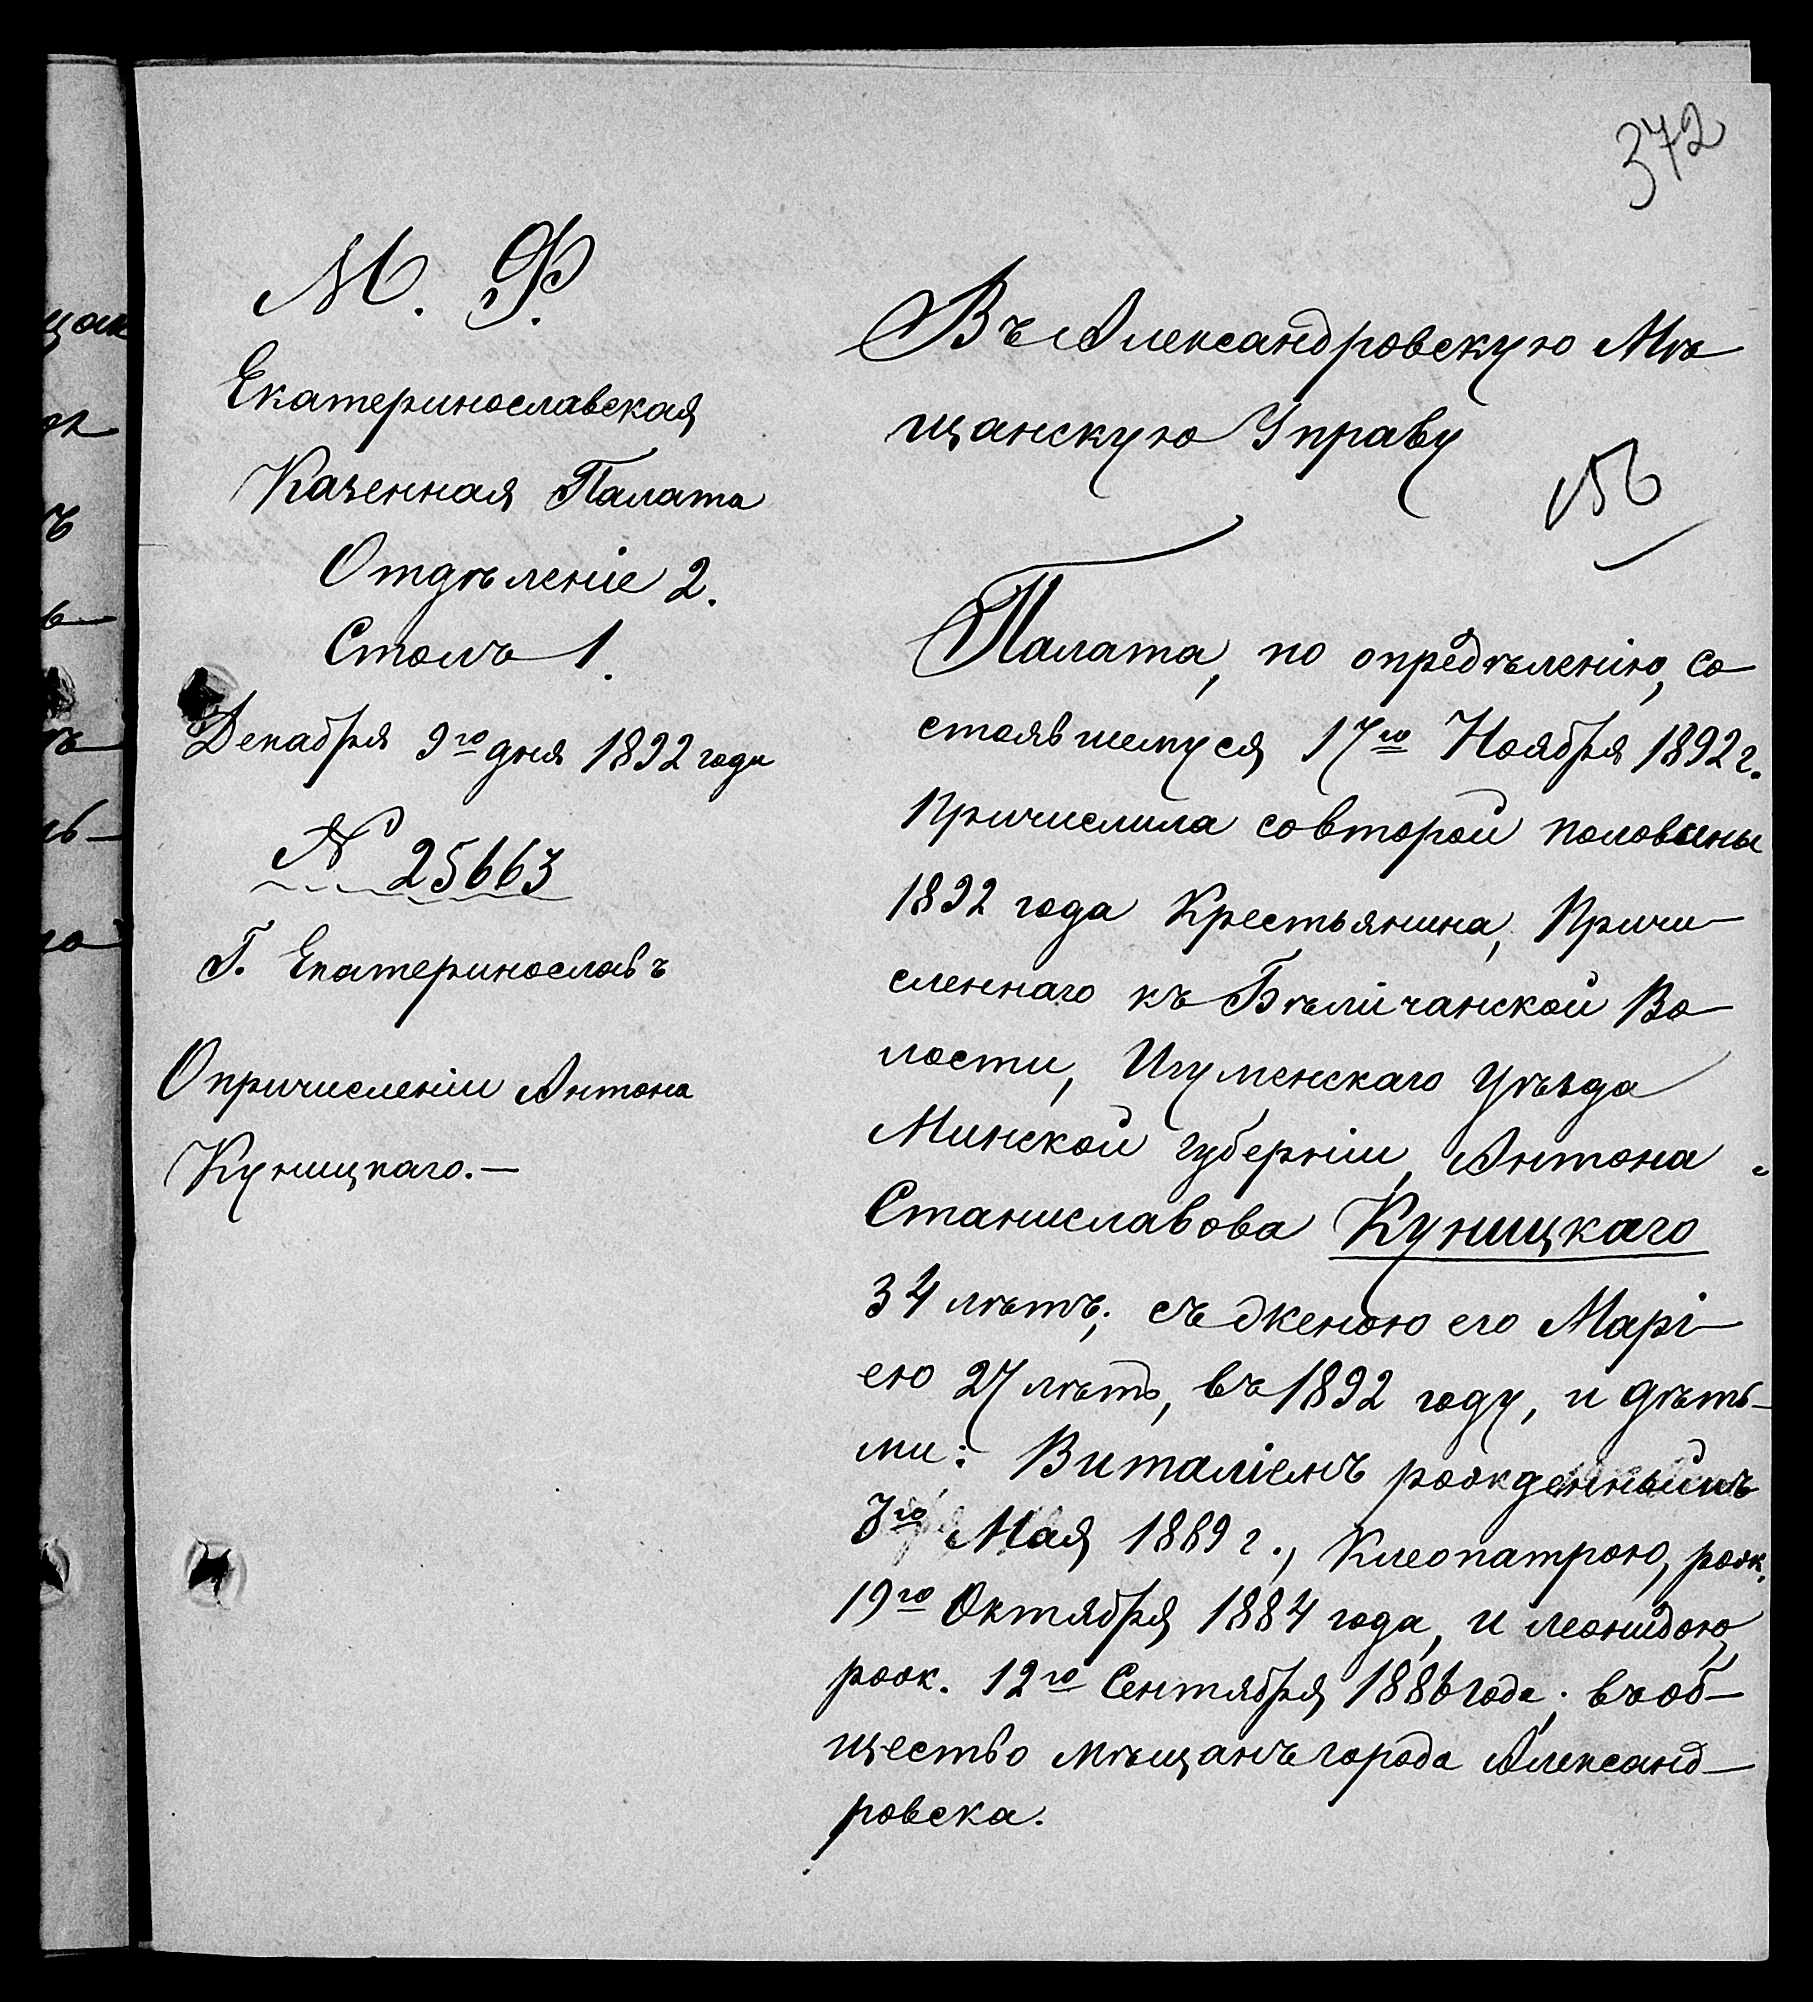 372
М. Ф.
Екатеринославская
Казенная Палата
Отдѣленіе 2.
Столъ 1.
Декабря 9го дня 1892 года
№ 25663
Г. Екатеринославъ
О причисленіи Антона
Куницкаго.—
Въ Александровскую Мѣ
щанскую Управу
156
Палата, по опредѣленію, со
стоявшемуся 17го Ноября 1892 г.
причислила со второй половины
1892 года Крестьянина, Причи-
сленнаго къ Бѣличанской Во-
лости, Игуменскаго уѣзда
Минской губерніи, Антона
Станиславова Куницкаго
34 лѣтъ, съ женою его Марі-
ею 27 лѣтъ, въ 1892 году, и дѣть-
ми: Виталіемъ рожденнымъ
3го Мая 1889 г., Клеопатрою, рож.
19го Октября 1884 года, и леонидою,
рож. 12го Сентября 1886 года; въ об-
щество мѣщанъ города Александ-
ровска.